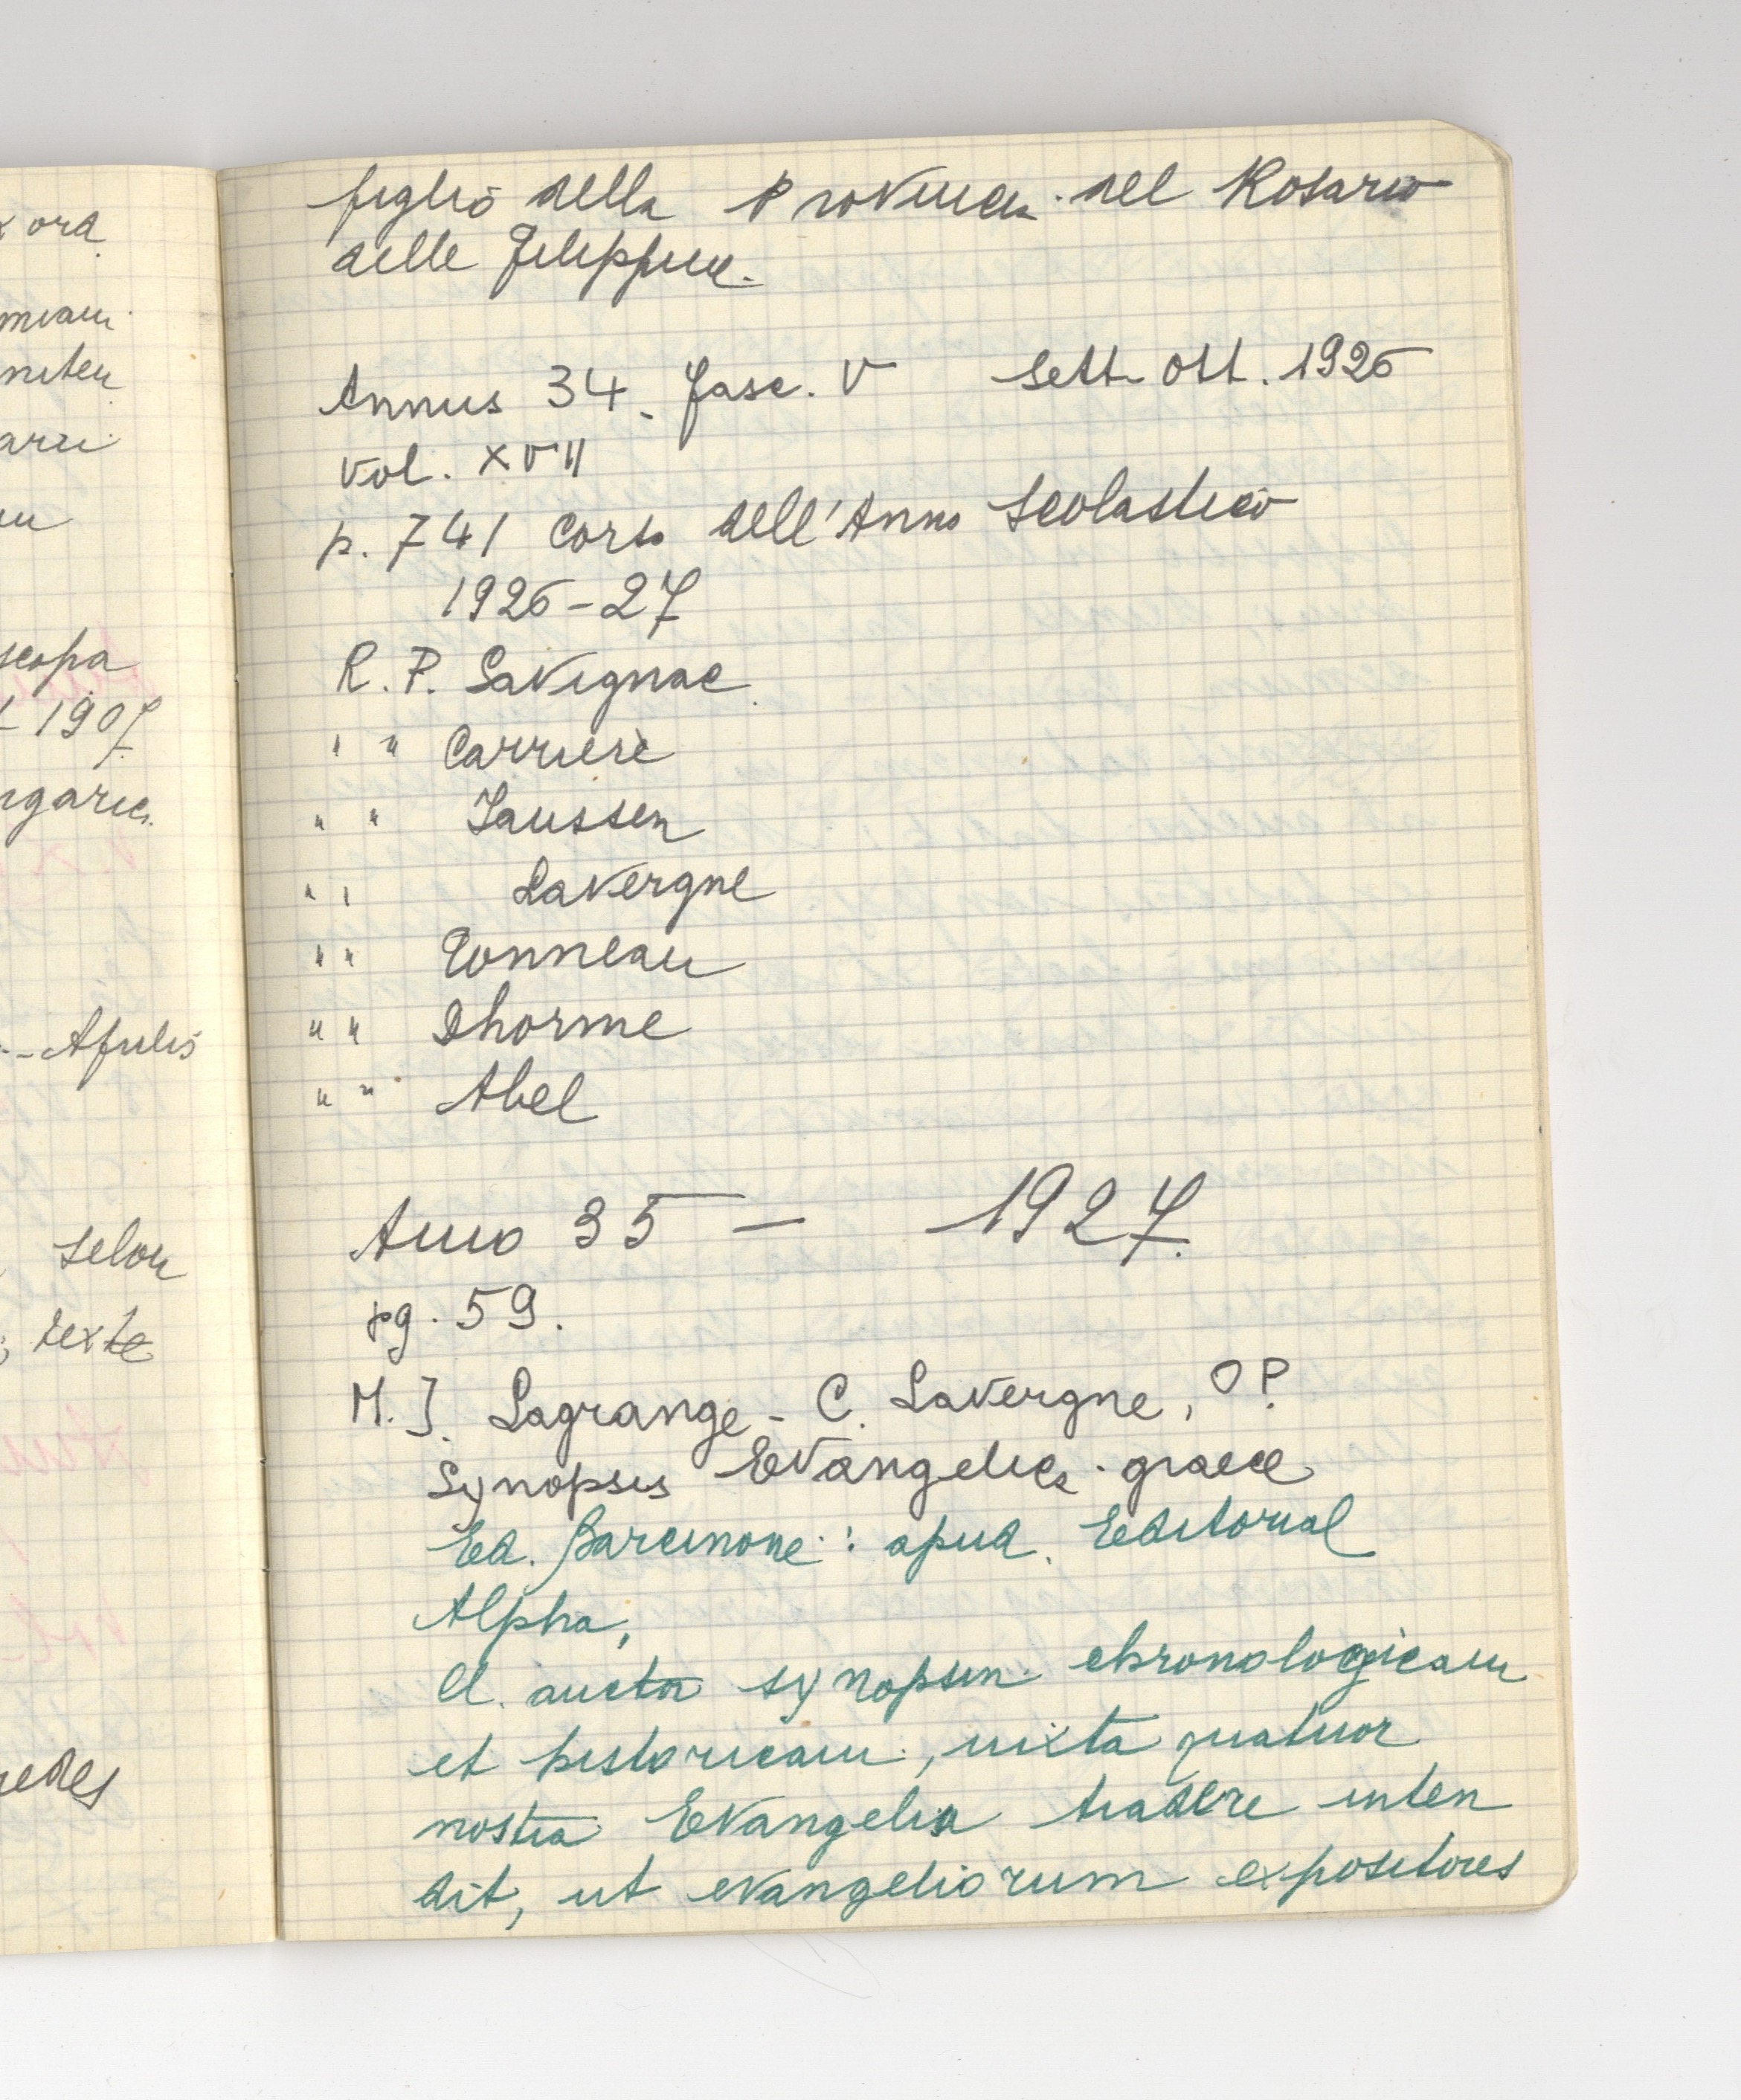 x ord.
miam
niten
arii
scopa
1907.
ngaric.
Apulis
selon
texte
edes
figlio della Provincia del Rosario
delle Filippine.
Annus 34 - fasc. V Sett-Ott. 1926
Vol. XVII
p. 741 Corso dell'Anno Scolastico
1926-27
R. P. Savignac
" " Carriere
" " Jaussen
" " Lavergne
" " Tonneau
" " Dhorme
" " Abel
Anno 35 - 1927.
pg. 59.
M. J. Lagrange - C. Lavergne, OP.
Synopsis Evangelica graece
Ed. Barcinone: apud. Editorial
Alpha,
Cl. auctor synopsin chronologicam
et historicam, iuxta quatuor
nostra Evangelia tradere inten
dit, ut evangeliorum expositores